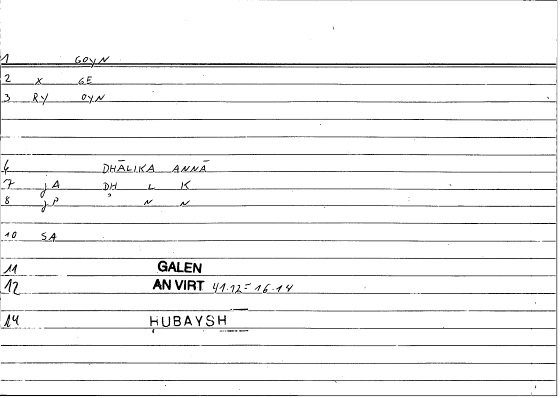 1 GOYN
2 X GE
3 RY OYN
6 DHĀLIKA ANNĀ
7 jA DH L K
8 jP N N
10 SA
11 GALEN
12 AN VIRT 41.12=16.14
14 HUBAYSH